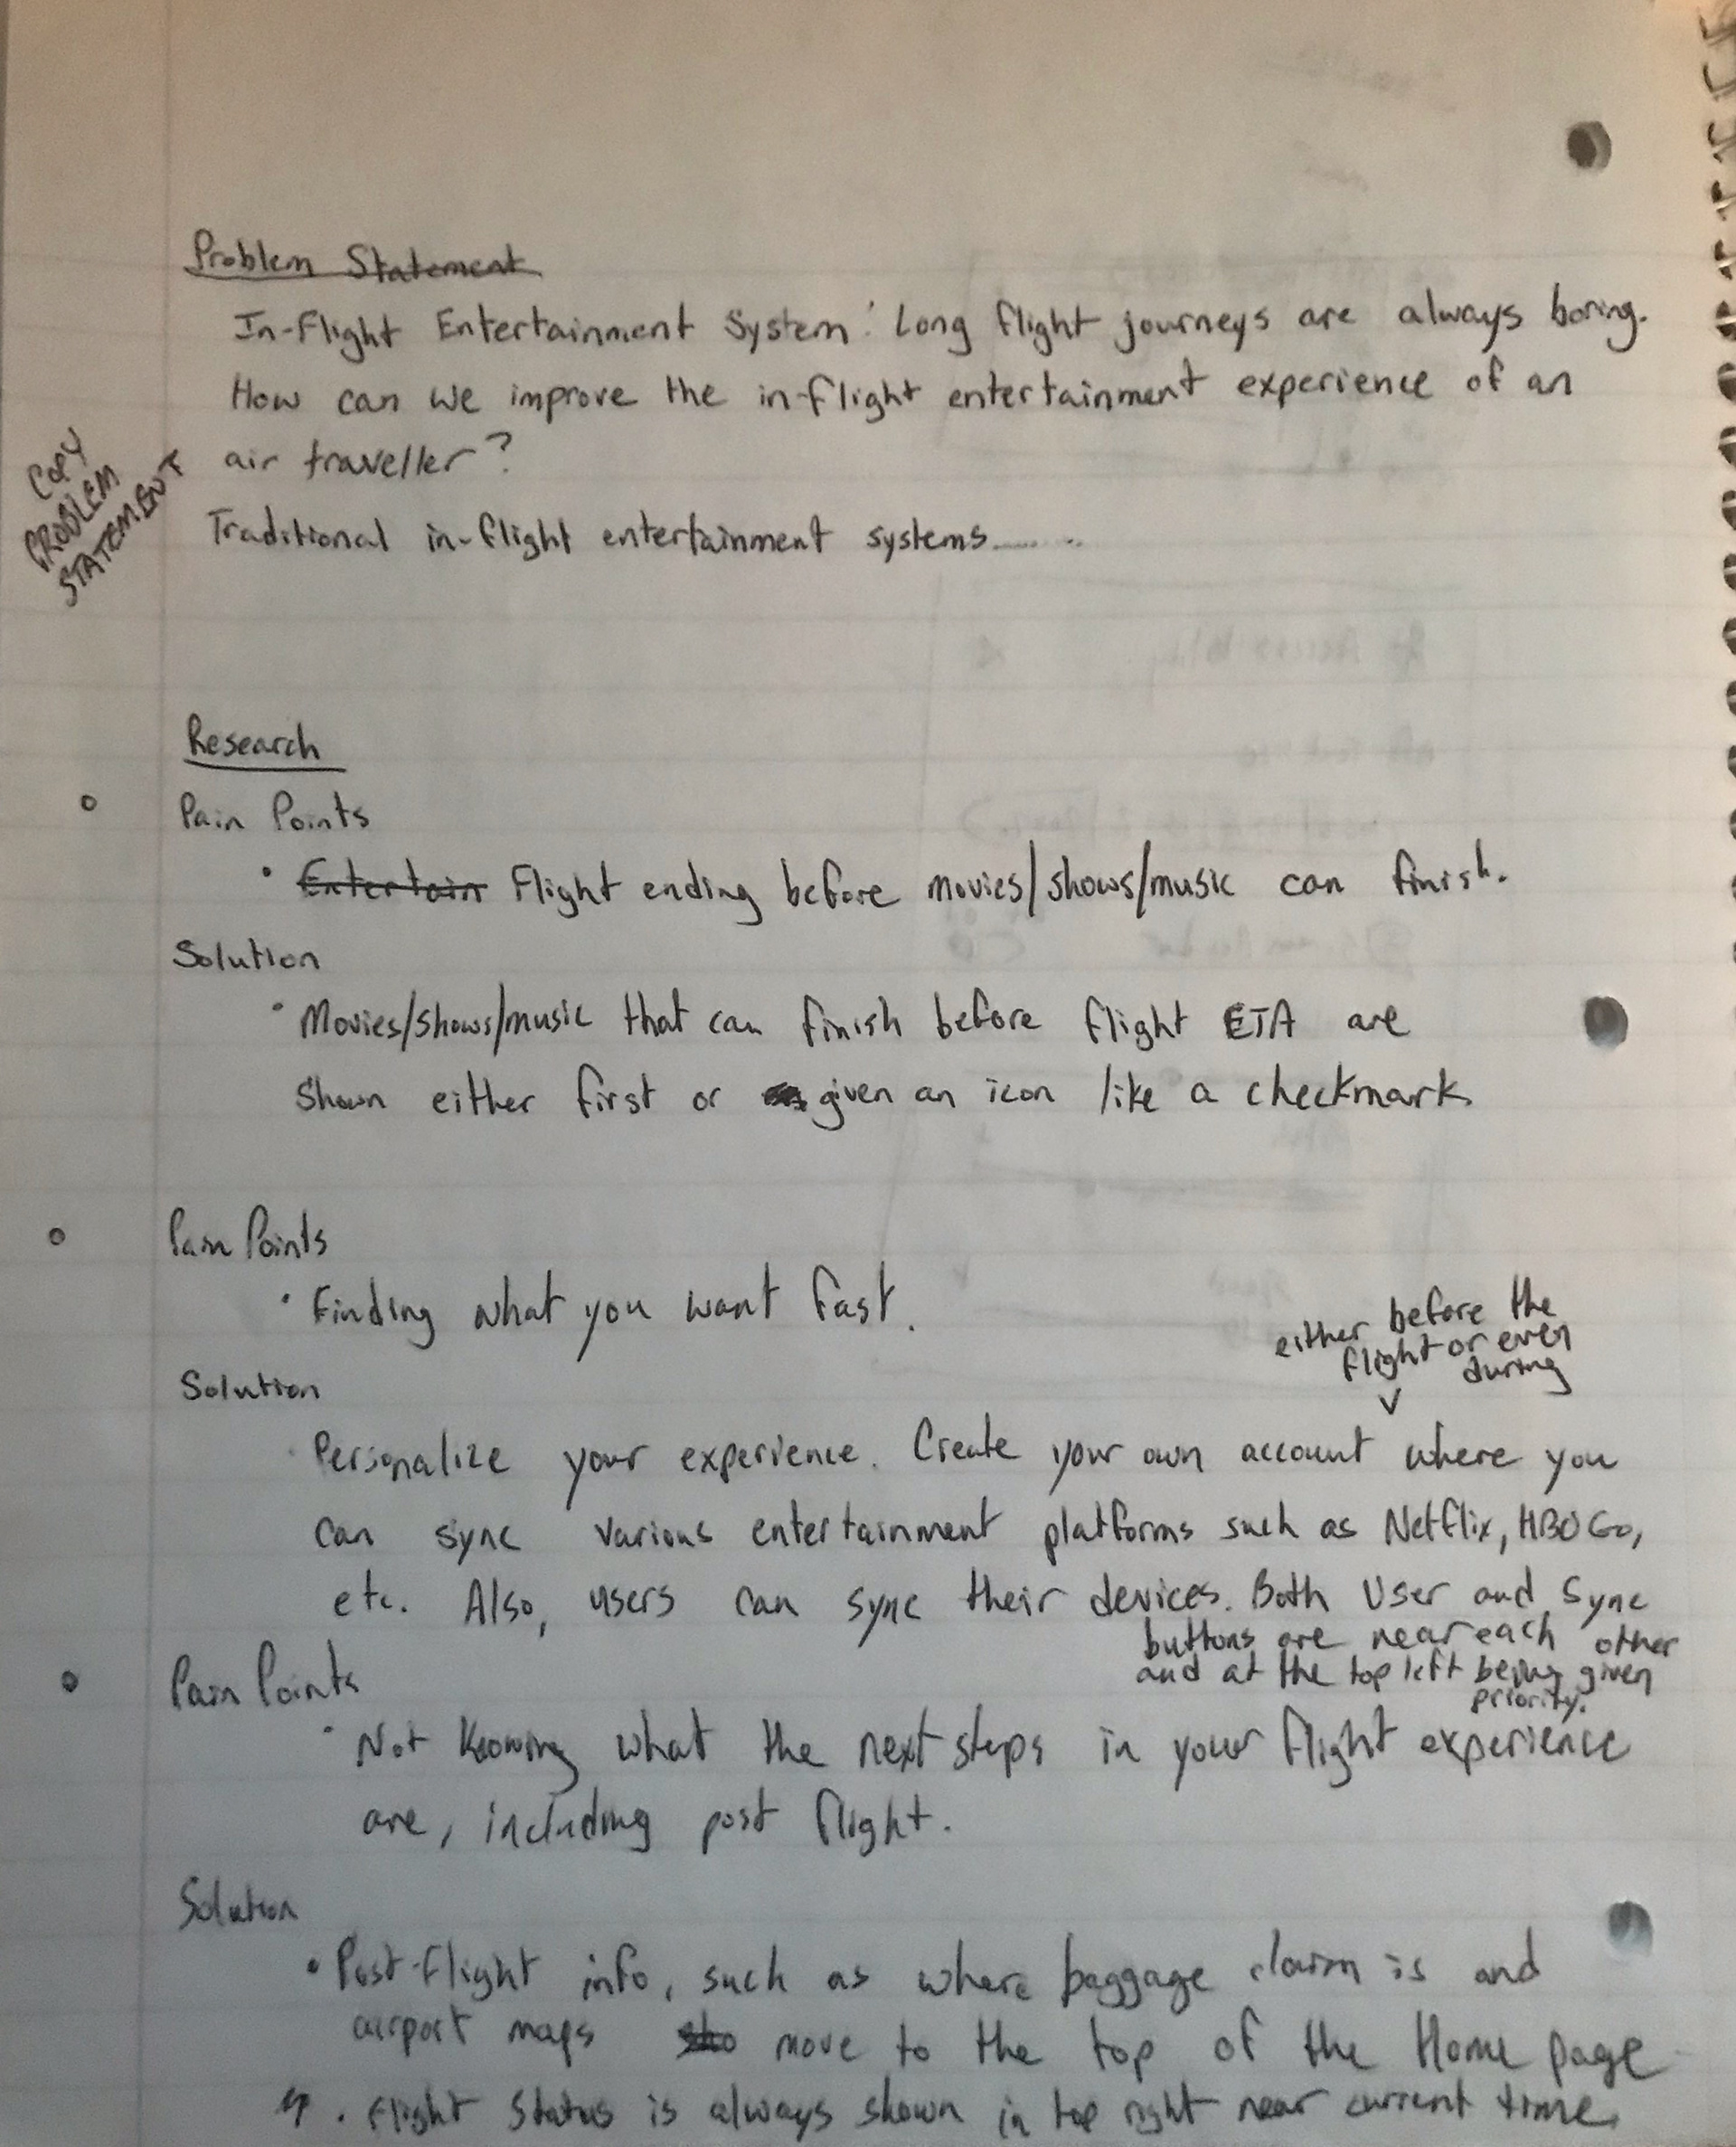 Problem Statement
In-Flight Entertainment System: Long flight journeys are always boring.
How can we improve the in-flight entertainment experience of an
air traveller?
COPY
PROBLEM
STATEMENT
Traditional in-flight entertainment systems.........
Research
Pain Points
• Entertain Flight ending before movies/shows/music can finish.
Solution
• Movies/shows/music that can finish before flight ETA are
shown either first or given an icon like a checkmark.
Pain Points
• Finding what you want fast.
either before the
flight or even
during
Solution
• Personalize your experience. Create your own account where you
can sync various entertainment platforms such as Netflix, HBO Go,
etc. Also, users can sync their devices. Both User and Sync
buttons are near each other
and at the top left being given
priority.
Pain Points
• Not knowing what the next steps in your flight experience
are, including post flight.
Solution
• Post-flight info, such as where baggage claim is and
airport maps sho move to the top of the Home page
• Flight Status is always shown in top right near current time.